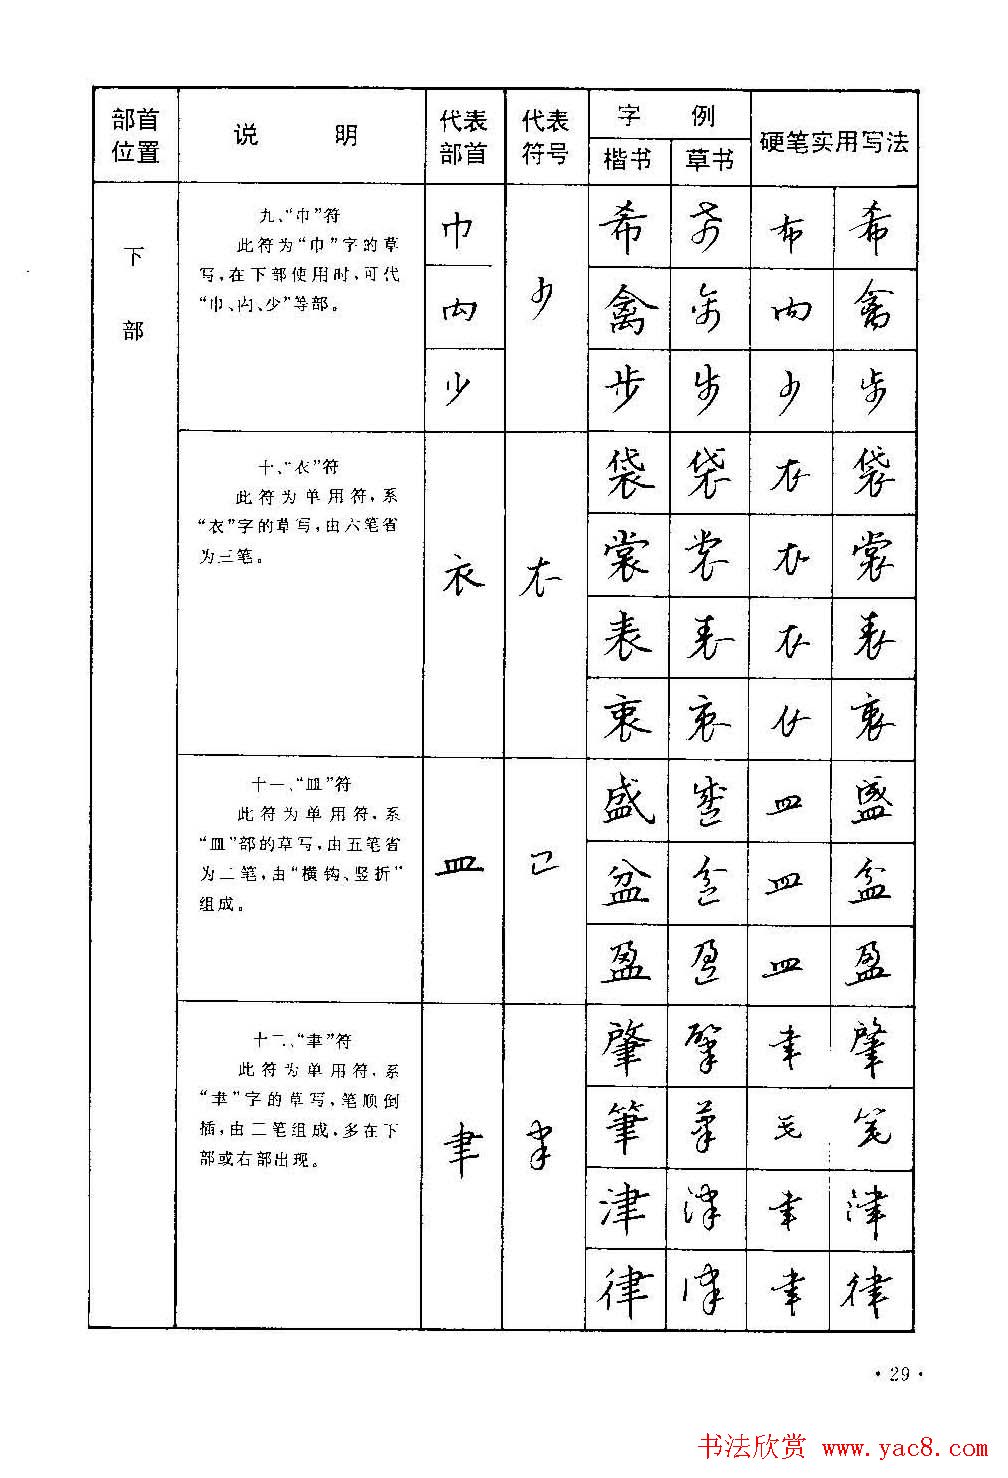 部首位置 说 明 代表部首 代表符号 字 例 硬笔实用写法
楷书 草书
下部
九、“巾”符
此符为“巾”字的草
写,在下部使用时,可代
“巾、禸、少”等部。
巾
禸
少
希 希 巾 希
禽 禽 禸 禽
步 步 少 步
十、“衣”符
此符为单用符,系
“衣”字的草写,由六笔省
为三笔。
衣 衣
袋 袋 衣 袋
裳 裳 衣 裳
表 表 衣 表
衷 衷 衷
十一、“皿”符
此符为单用符,系
“皿”部的草写,由五笔省
为二笔,由“横钩、竖折”
组成。
皿
盛 盛 皿 盛
盆 盆 皿 盆
盈 盈 皿 盈
十二、“聿”符
此符为单用符,系
“聿”字的草写,笔顺倒
插,由二笔组成,多在下
部或右部出现。
聿 聿
肇 肇 聿 肇
筆 筆 毛 笔
津 津 聿 津
律 律 聿 律
·29·
书法欣赏 www.yac8.com